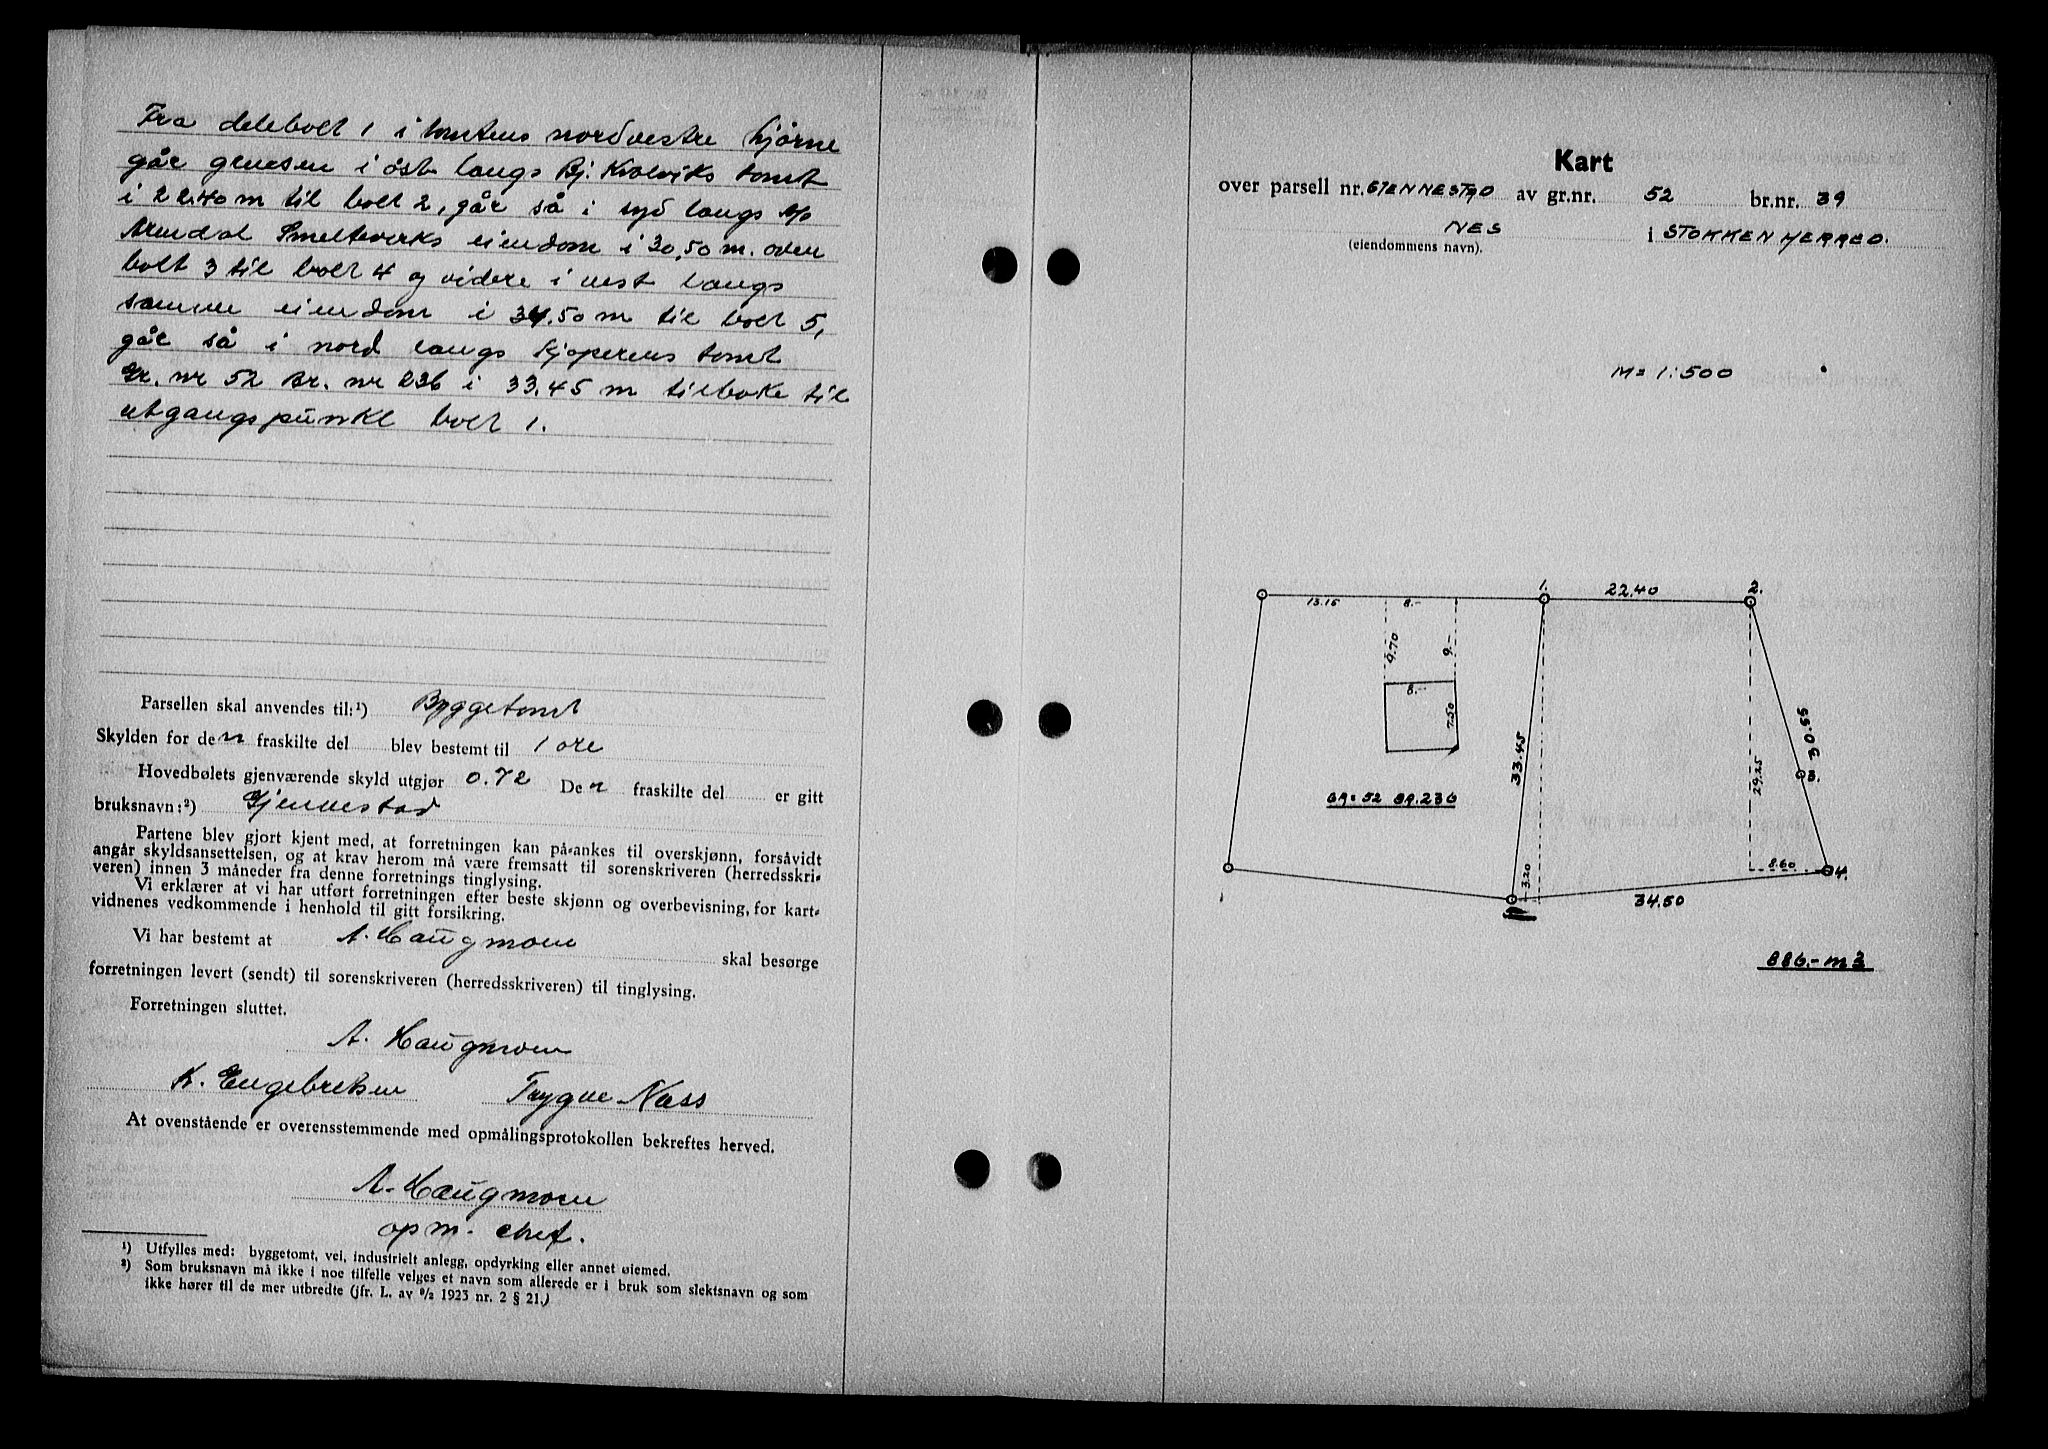 Fra delebolt 1 i tomtens nordvestre hjørne
går grensen i øst langs Bj. Kvalviks tomt
i 22.40 m til bolt 2, går så i syd langs A/S
Arendal Smelteverks eiendom i 30,50 m. over
bolt 3 til bolt 4 og videre i vest langs
samme eiendom i 34.50 m til bolt 5,
går så i nord langs kjøperens tomt
Gr. nr 52 Br. nr 236 i 33.45 m tilbake til
utgangspunkt bolt 1.
Parsellen skal anvendes til:¹) Byggetomt
Skylden for den fraskilte del blev bestemt til 1 øre
Hovedbølets gjenværende skyld utgjør 0.72 Den fraskilte del er gitt
bruksnavn:²) Gjennestad
Partene blev gjort kjent med, at forretningen kan på-ankes til overskjønn, forsåvidt
angår skyldsansettelsen, og at krav herom må være fremsatt til sorenskriveren (herredsskri-
veren) innen 3 måneder fra denne forretnings tinglysing.
Vi erklærer at vi har utført forretningen efter beste skjønn og overbevisning, for kart-
vidnenes vedkommende i henhold til gitt forsikring.
Vi har bestemt at A. Haugmoen skal besørge
forretningen levert (sendt) til sorenskriveren (herredsskriveren) til tinglysing.
Forretningen sluttet.
A. Haugmoen
K. Engebretsen Trygve Næss
At ovenstående er overensstemmende med opmålingsprotokollen bekreftes herved.
A. Haugmoen
opm. chef.
¹) Utfylles med: byggetomt, vei, industrielt anlegg, opdyrking eller annet øiemed.
²) Som bruksnavn må ikke i noe tilfelle velges et navn som allerede er i bruk som slektsnavn og som
ikke hører til de mer utbredte (jfr. L. av 9/2 1923 nr. 2 § 21.)
Kart
over parsell nr. GJENNESTAD av gr.nr. 52 br.nr. 39
NES i STOKKEN HERRED.
(eiendommens navn).
M= 1:500
1. 22.40 2.
13.15 8.-
9.70 9.-
8.-
7.50
30.55
33.45
29.25
3.
GR=52 BR.236
8.60
4.
3.20
34.50
886.- m2